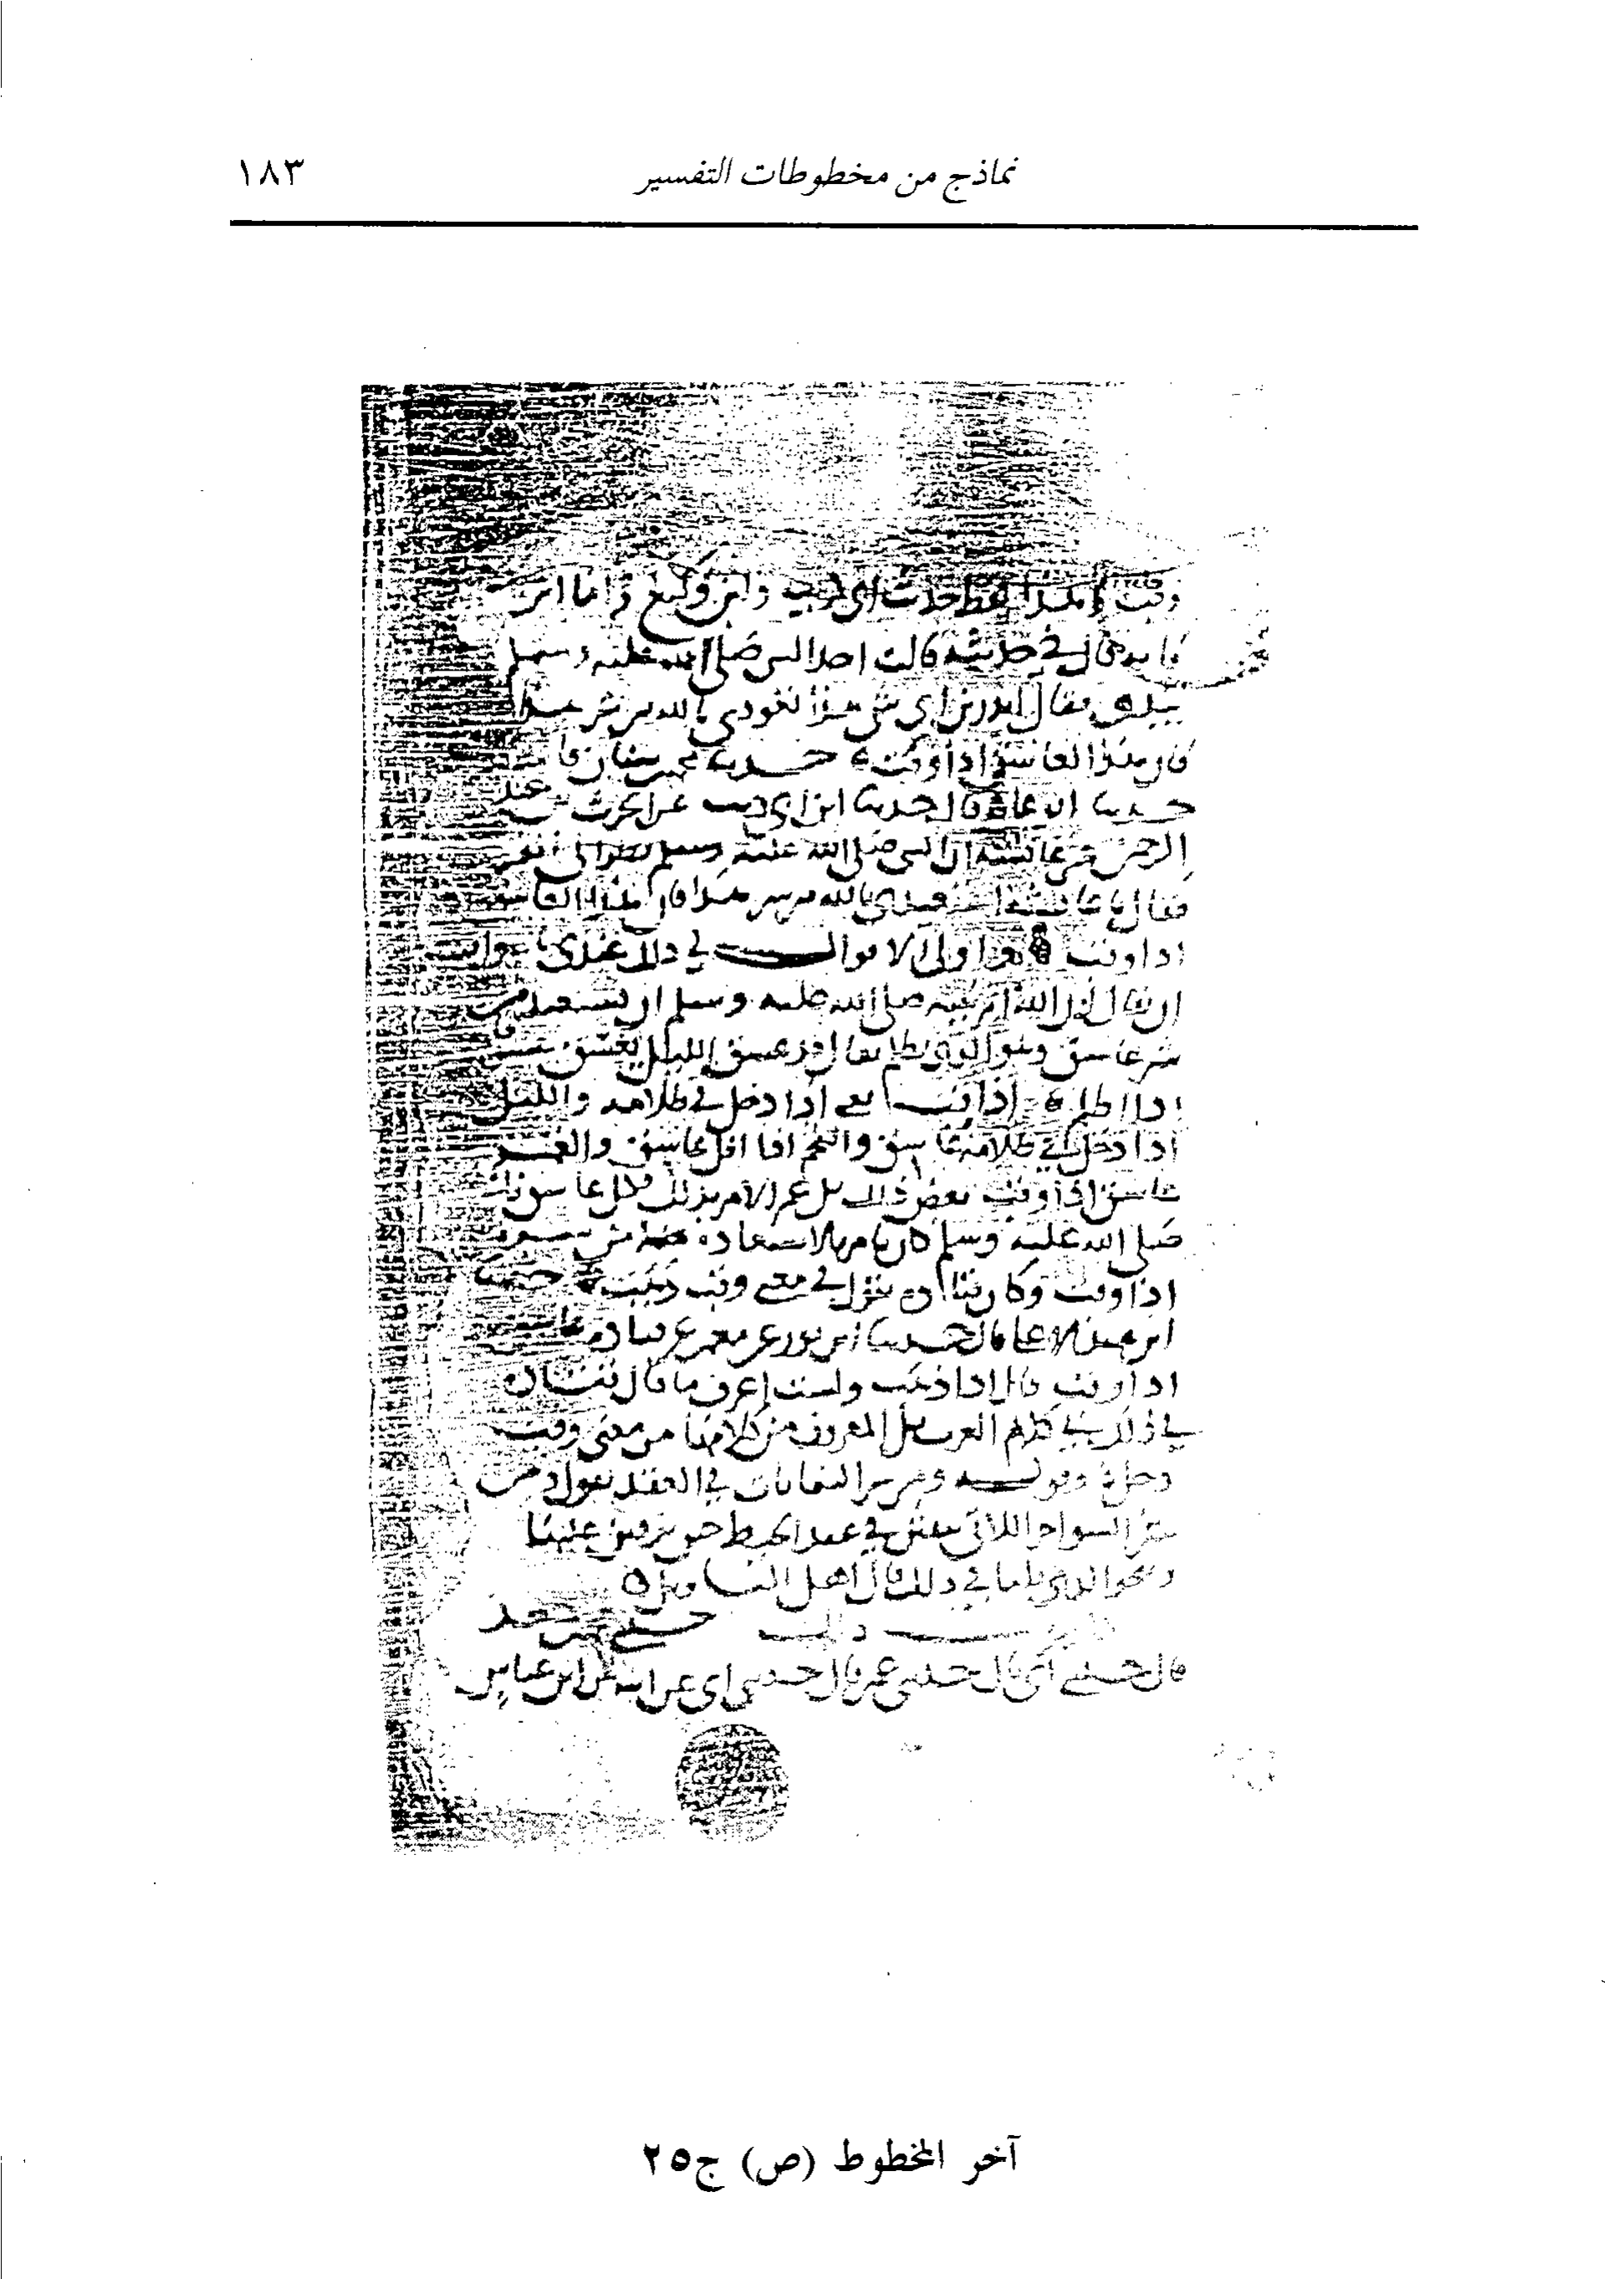 نماذج من مخطوطات التفسير ١٨٣
وقب وهذا لفظ حديث أبي كريب وابن وكيع وأما ابن
فإنه قال في حديثه قالت أخذ النبي صلى الله عليه وسلم
بيدي فقال أتدرين أي شيء هذا تعوذي بالله من شر هذا
فإن هذا الغاسق إذا وقب حدثنا محمد بن سنان قال
حدثنا أبو عامر قال حدثنا ابن أبي ذئب عن الحرث بن عبد
الرحمن عن عائشة أن النبي صلى الله عليه وسلم نظر إلى القمر
فقال يا عائشة استعيذي بالله من شر هذا فإن هذا الغاسق
إذا وقب وأولى الأقوال في ذلك عندي بالصواب
أن يقال إن الله أمر نبيه صلى الله عليه وسلم أن يستعيذ من
شر غاسق وهو الذي يظلم يقال قد غسق الليل يغسق غسوقا
إذا أظلم إذا وقب يعني إذا دخل في ظلامه والليل
إذا دخل في ظلامه غاسق والنجم إذا أفل غاسق والقمر
غاسق إذا وقب بعض ذلك بل عم الأمر بذلك فكل غاسق فإنه
صلى الله عليه وسلم كان يأمر بالاستعاذة من شره
إذا وقب وكان قتادة يقول في معنى وقب ذهب حدثنا
ابن عبد الأعلى قال حدثنا ابن ثور عن معمر عن قتادة غاسق
إذا وقب قال إذا ذهب ولست أعرف ما قال قتادة
في ذلك في كلام العرب بل المعروف من كلامها من معنى وقب
دخل وقوله ومن شر النفاثات في العقد يقول ومن
شر السواحر اللاتي ينفثن في عقد الخيط حين يرقين عليها
وبنحو الذي قلنا في ذلك قال أهل التأويل
ذلك حدثني محمد بن سعد
قال حدثني أبي قال حدثني عمي قال حدثني أبي عن أبيه عن ابن عباس
آخر المخطوط (ص) ج٢٥